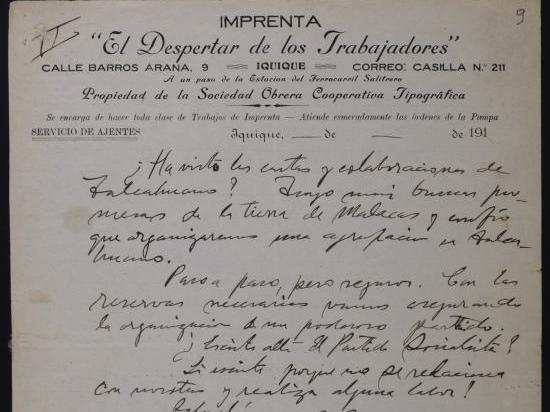 9
II
IMPRENTA
"El Despertar de los Trabajadores"
CALLE BARROS ARANA, 9 IQUIQUE CORREO: CASILLA N.° 211
A un paso de la Estacion del Ferrocarril Salitrero
Propiedad de la Sociedad Obrera Cooperativa Tipográfica
Se encarga de hacer toda clase de Trabajos de Imprenta — Atiende esmeradamente las órdenes de la Pampa
SERVICIO DE AJENTES Iquique, de de 191
¿Ha visto las cartas y colaboraciones de
Talcahuano? Tengo mui buenas pro-
mesas de la tierra de y confío
que organizaremos una agrupacion en Talca-
huano.
Paso a paso, pero seguros. Con las
reservas necesarias vamos asegurando
la organizacion de un poderoso partido.
¿Existe allá el Partido Socialista?
Si existe porque no se relaciona
con nosotros y realiza alguna labor?